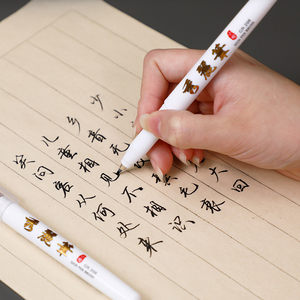 少小大回
乡音无毛衰
儿童相见不相识
笑问客从何处来
麗筆
麗筆